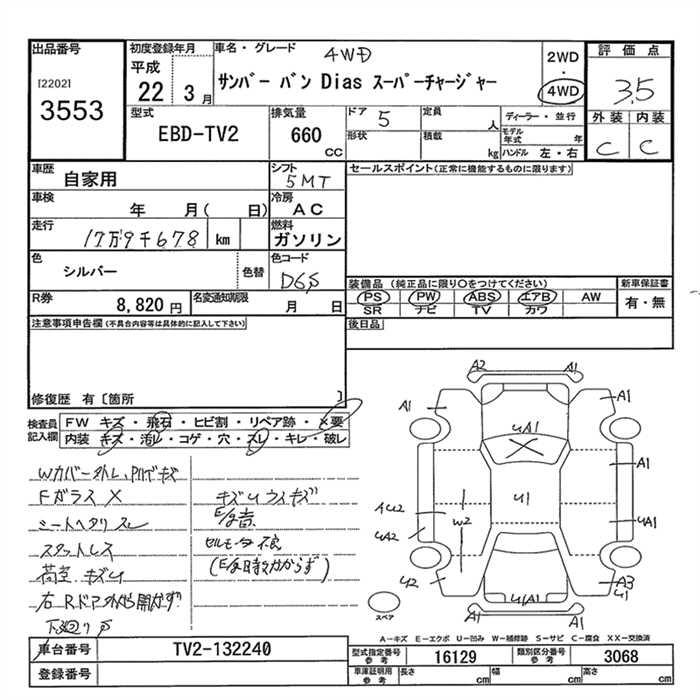 出品番号
[2202]
3553
初度登録年月
平成
22 3月
車名・グレード
4WD
サンバー バン Dias スーパーチャージャー
2WD
・
4WD
評価点
3.5
外装 内装
C C
型式
EBD-TV2
排気量
660
cc
ドア 5
形状
定員
人
積載
kg
ディーラー・並行
モデル年式 年
ハンドル 左・右
車歴
自家用
シフト
5MT
セールスポイント(正常に機能するものに限ります)
車検
年 月( 日)
冷房
AC
走行
17万9千678 km
燃料
ガソリン
色
シルバー
色替
色コード
D6S
装備品(純正品に限り○をつけてください)
PS PW ABS エアB AW
SR ナビ TV カワ
新車保証書
有・無
R券
8,820円
名変通知期限
月 日
後日品
注意事項申告欄(不具合内容等は具体的に記入して下さい)
修復歴 有〔箇所 〕
検査員記入欄
FW キズ・飛石・ヒビ割・リペア跡・×要
内装 キズ・汚レ・コゲ・穴・スレ・キレ・破レ
Wカバー外レ、P
キズ
Fガラス X
シートヘタリ スレ
スタットレス
荷室 キズU
右Rドア
開かず
下廻りS
キズU ウスキズ
E/g音
セルモータ不良
(E/g時々かからず)
A2 A1
A1 A1
UA1
A1
U1
AU2
W2
UA1
UA2
U2
A3
U1
U1A1
A1
スペア
A－キズ E－エクボ U－凹み W－補修跡 S－サビ C－腐食 XX－交換済
車台番号
TV2-132240
型式指定番号
参考
16129
類別区分番号
参考
3068
登録番号
車庫証明用
参考
長さ cm
幅 cm
高さ cm